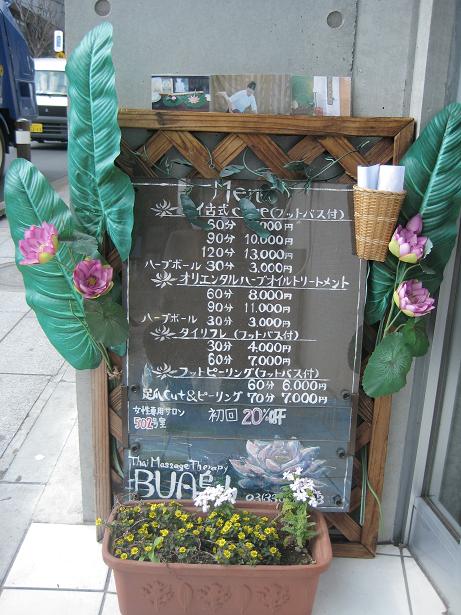 Menu
イ古式 (フットバス付)
60分 000円
90分 10,000円
120分 13,000円
ハーブボール 30分 3,000円
オリエンタルハーブオイルトリートメント
60分 8,000円
90分 11,000円
ハーブボール 30分 3,000円
タイリフレ (フットバス付)
30分 4,000円
60分 7,000円
フットピーリング(フットバス付)
60分 6,000円
足爪Cut&ピーリング 70分 7,000円
女性専用サロン 初回 20%off
502号室
Thai Massage Therapy
BUA